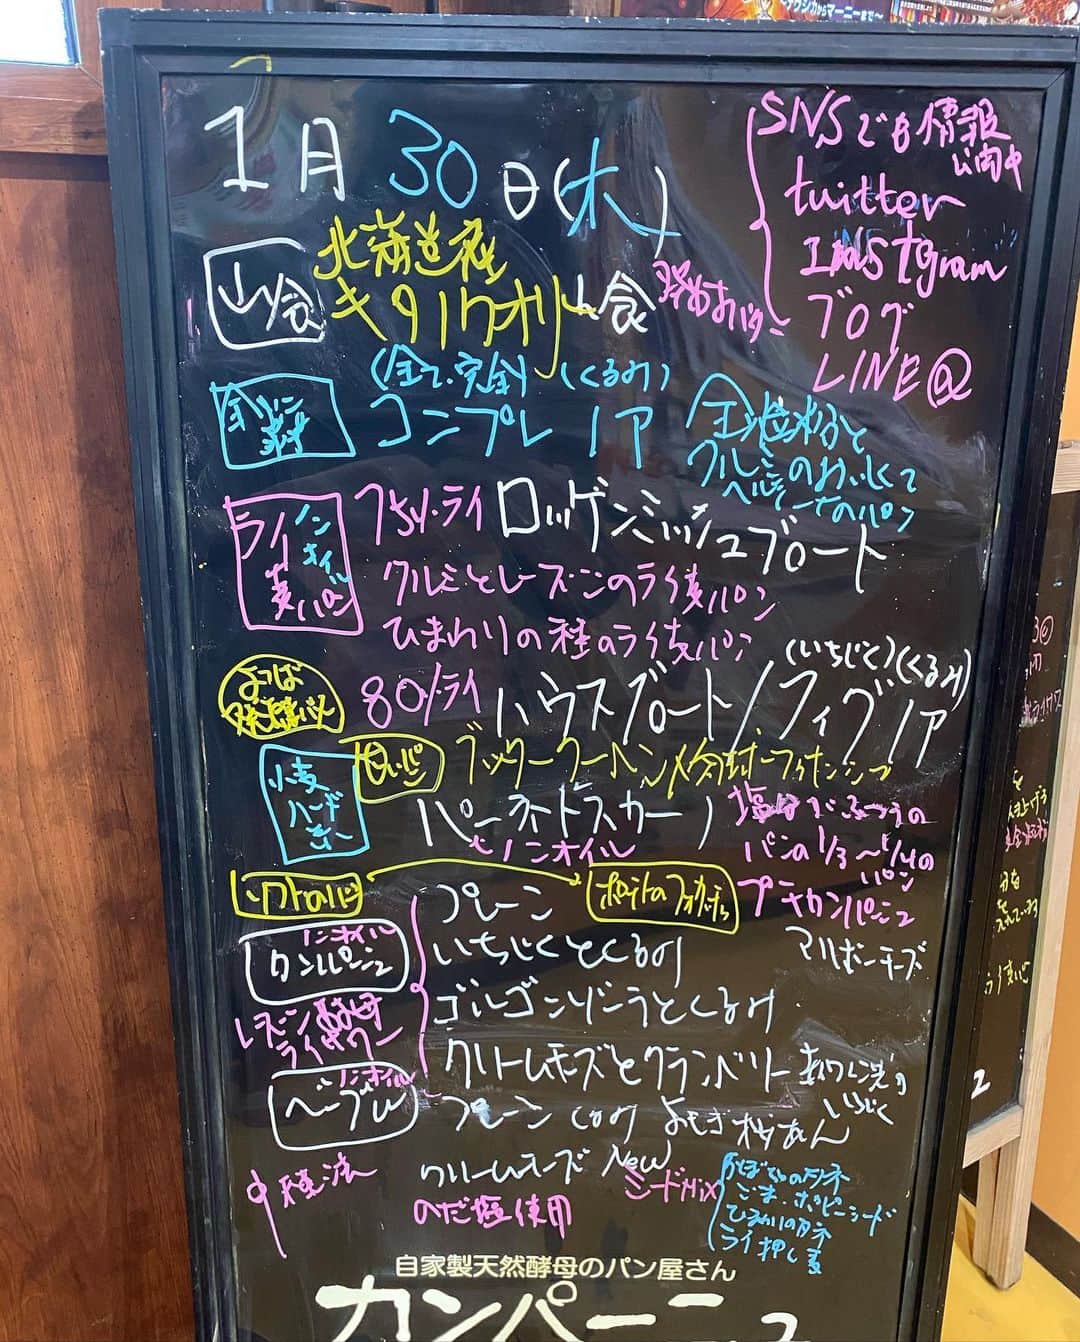 1月30日(木)
SNSでも情報
公開中
twitter
Instgram
ブログ
LINE@
山食
北海道産
キタノカオリ山食
(全て、完全)(くるみ)
コンプレ ノア
全粒粉と
クルミのおいしくて
ヘルシーなパン
ライ麦パン
ノンオイル
75%ライ ロッゲンミッシュブロート
クルミとレーズンのライ麦パン
ひまわりの種のライ麦パン
(いちじく)(くるみ)
よつば
発酵バター
80%ライ ハウスブロート/フィグノア
小麦
ハード
系
白いパン
パーネトスカーノ
ノンオイル
塩分がふつうの
パンの1/3〜1/4の
パン
ポテトのフォカッチャ
プチカンパーニュ
マルボーチーズ
ノンオイル
カンパーニュ
プレーン
いちじくとくるみ
レーズン酵母
ライサワー
ゴルゴンゾーラとくるみ
クリームチーズとクランベリー
いちじく
ノンオイル
ベーグル
プレーン くるみ よもぎ 桜あん
中種法
クリームチーズ New
シードMix
かぼちゃのタネ
ごま、ポピーシード
ひまわりのタネ
ライ押し麦
のだ塩使用
自家製天然酵母のパン屋さん
カンパーニュ